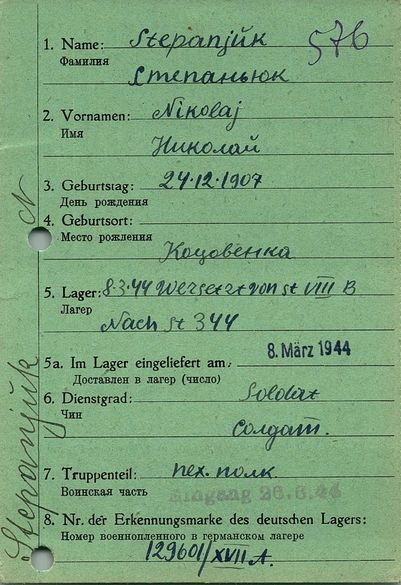 1. Name: Stepanjúk
576
Фамилия
Степаньюк
2. Vornamen: Nikolaj
Имя
Николай
3. Geburtstag: 24.12.1907
День рождения
4. Geburtsort:
Место рождения
Коцовенка
5. Lager: 8.3.44 Wersetzt von st VIII B
Лагер
Nach St 344
5a. Im Lager eingeliefert am: 8. März 1944
Доставлен в лагер (число)
6. Dienstgrad: Soldat
Чин
Солдат.
7. Truppenteil: пех. полк
Воинская часть
Eingang 26.6.44
8. Nr. der Erkennungsmarke des deutschen Lagers:
Номер военнопленного в германском лагере
129601/XVII A.
Stepanjúk N